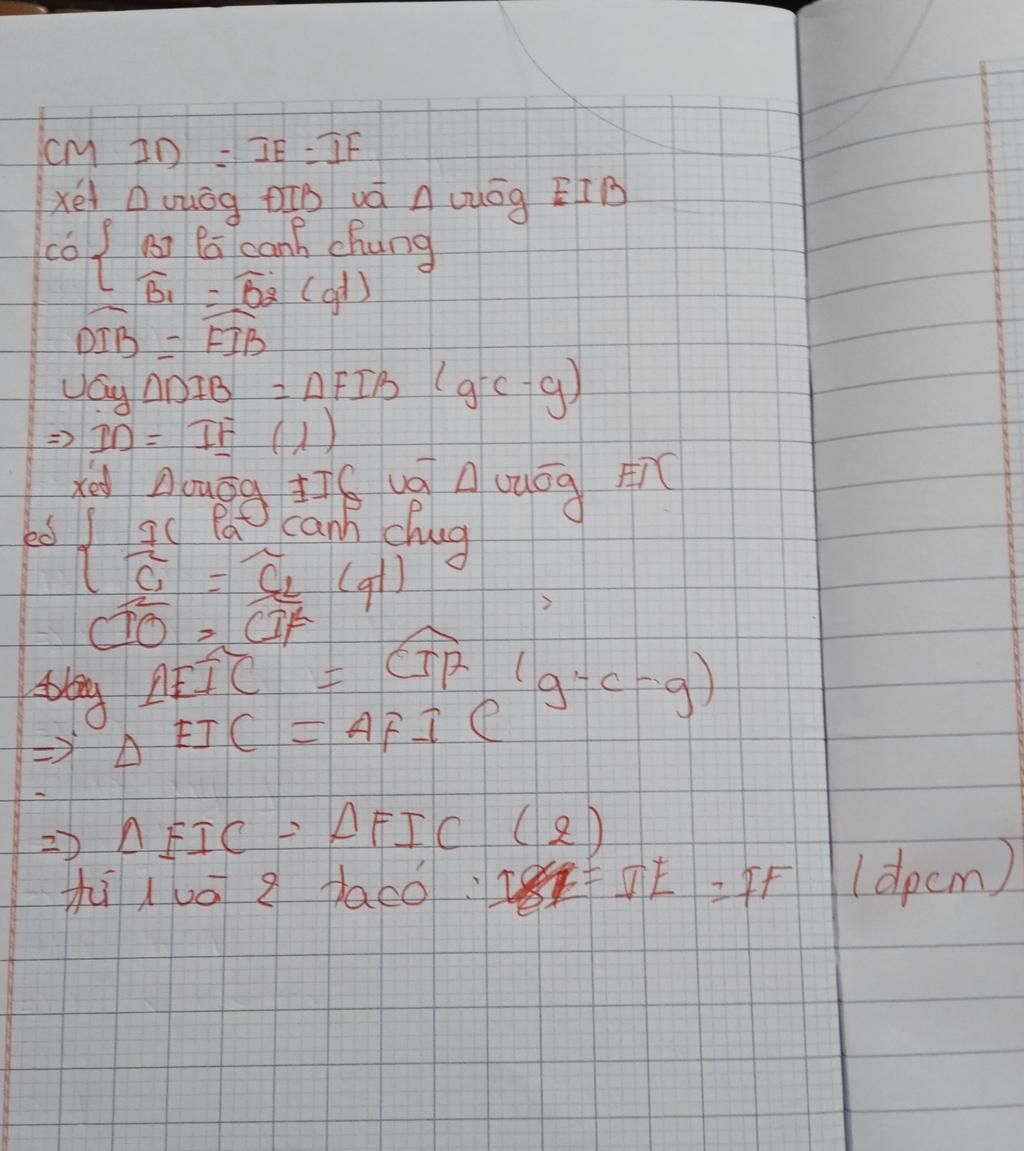 CM ID = IE = IF
xét Δ vuôg DIB và Δ vuôg EIB
có { BI là cạnh chung
B̂₁ = B̂₂ (gt)
DIB = EIB
Vậy ΔDIB = ΔEIB (g-c-g)
=> ID = IE (1)
xét Δ vuôg EIC và Δ vuôg FIC
có { IC là cạnh chug
Ĉ₁ = Ĉ₂ (gt)
= CIF
ΔEIC = CIF (g-c-g)
=> Δ EIC = ΔFIC
=> Δ EIC = ΔFIC (2)
từ 1 và 2 ta có : = IE = IF (đpcm)